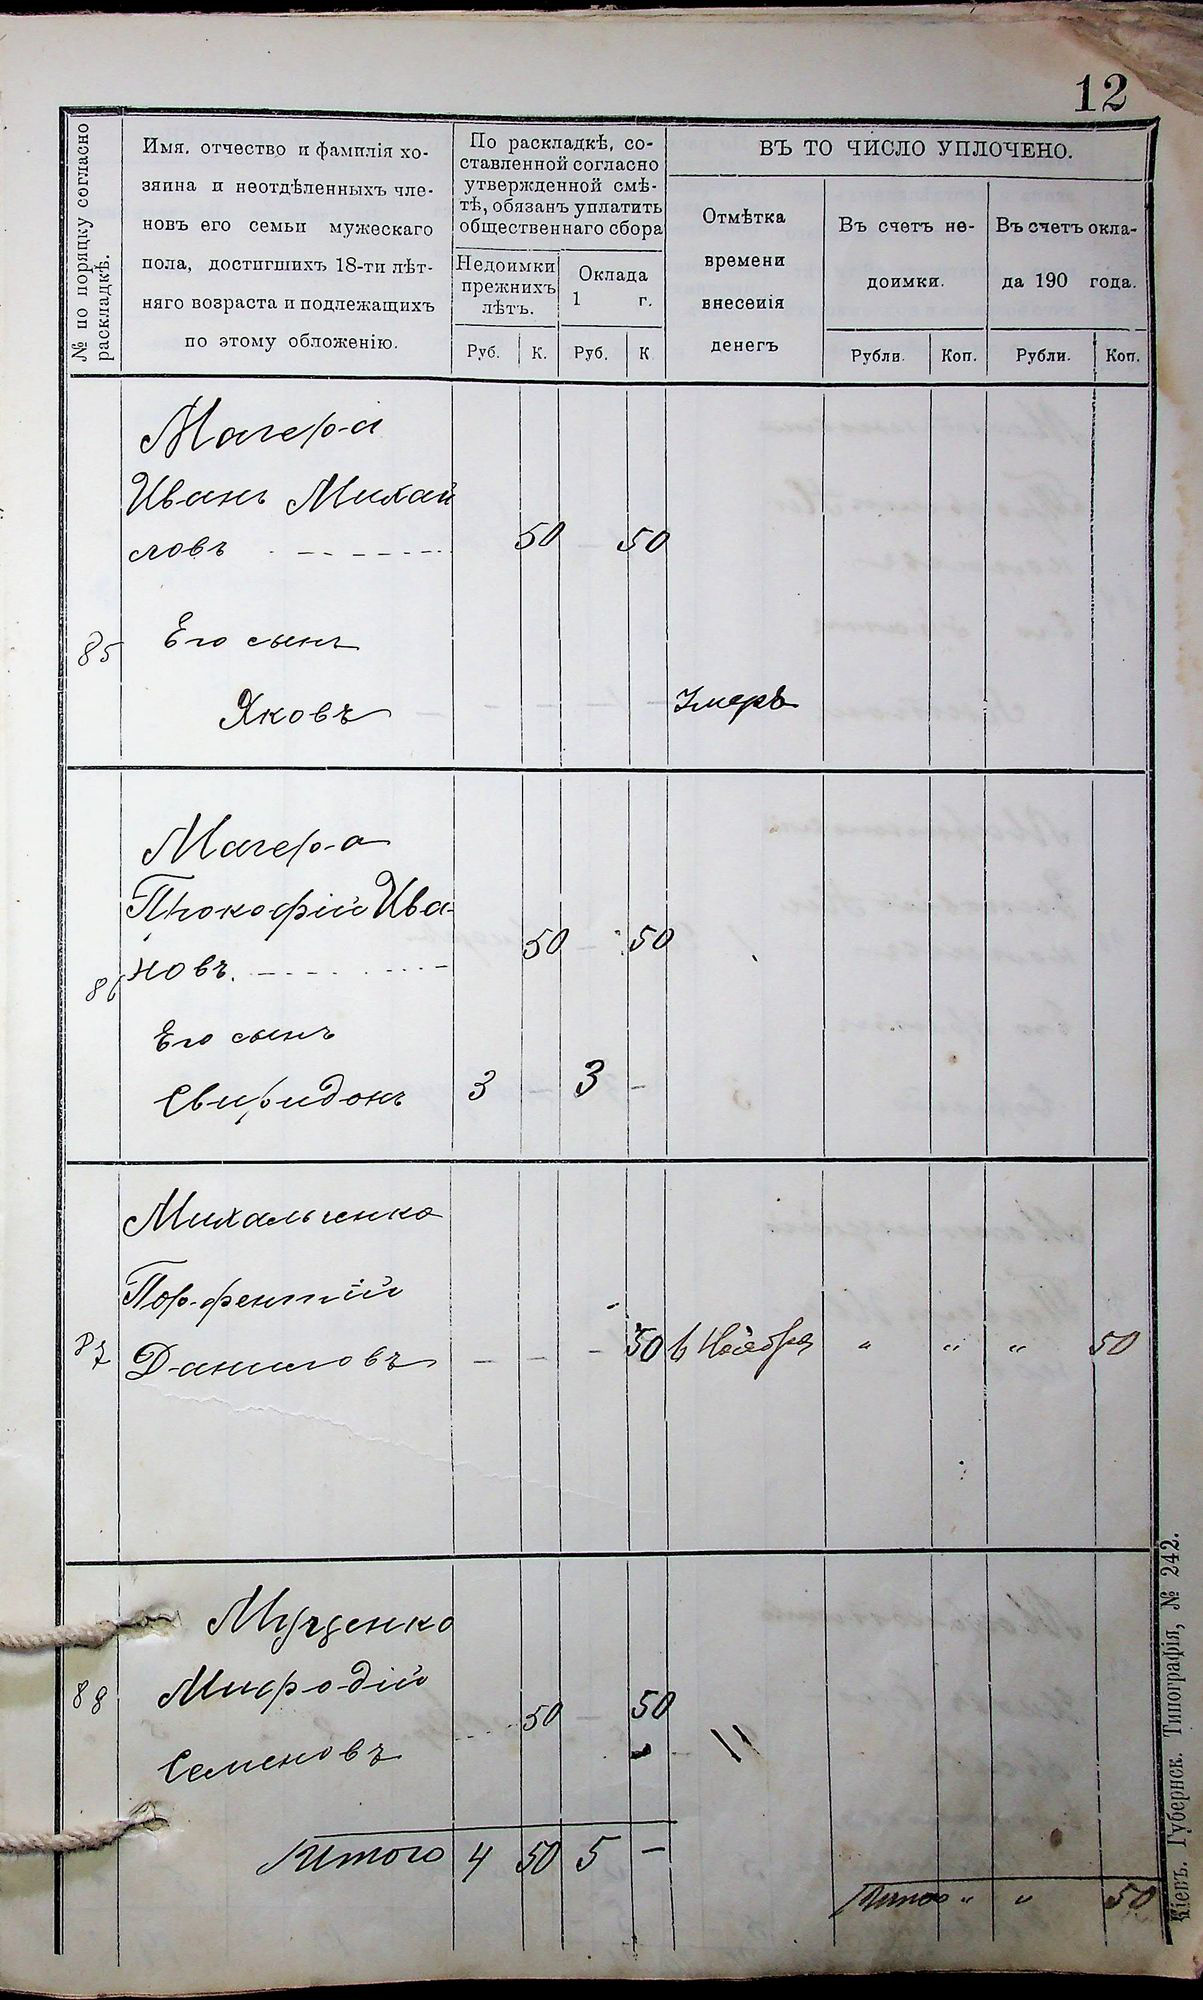 12
№ по порядку согласно
раскладкѣ.
Имя, отчество и фамилія хо-
зяина и неотдѣленныхъ чле-
новъ его семьи мужескаго
пола, достигшихъ 18-ти лѣт-
няго возраста и подлежащихъ
по этому обложенію.
По раскладкѣ, со-
ставленной согласно
утвержденной смѣ-
тѣ, обязанъ уплатить
общественнаго сбора
Недоимки
прежнихъ
лѣтъ.
Оклада
1 г.
Руб. К. Руб. К
ВЪ ТО ЧИСЛО УПЛОЧЕНО.
Отмѣтка
времени
внесенія
денегъ
Въ счетъ не-
доимки.
Въ счетъ окла-
да 190 года.
Рубли. Коп. Рубли. Коп.
Магера
Иванъ Михай
ловъ 50 – 50
85 Его сынъ
Яковъ – – – – – Умеръ
Магера
Прокофій Ива-
86 новъ. 50 – 50
Его сынъ
Свиридонъ 3 – 3 –
Михальченко
Порфентій
87 Даниловъ – – – – 50 6 Ноября " " " 50
Мущенко
88 Мифодій 50 – 50
Семеновъ
Итого 4 50 5 –
Итого " " 50
Кіевъ. Губернск. Типографія, № 242.